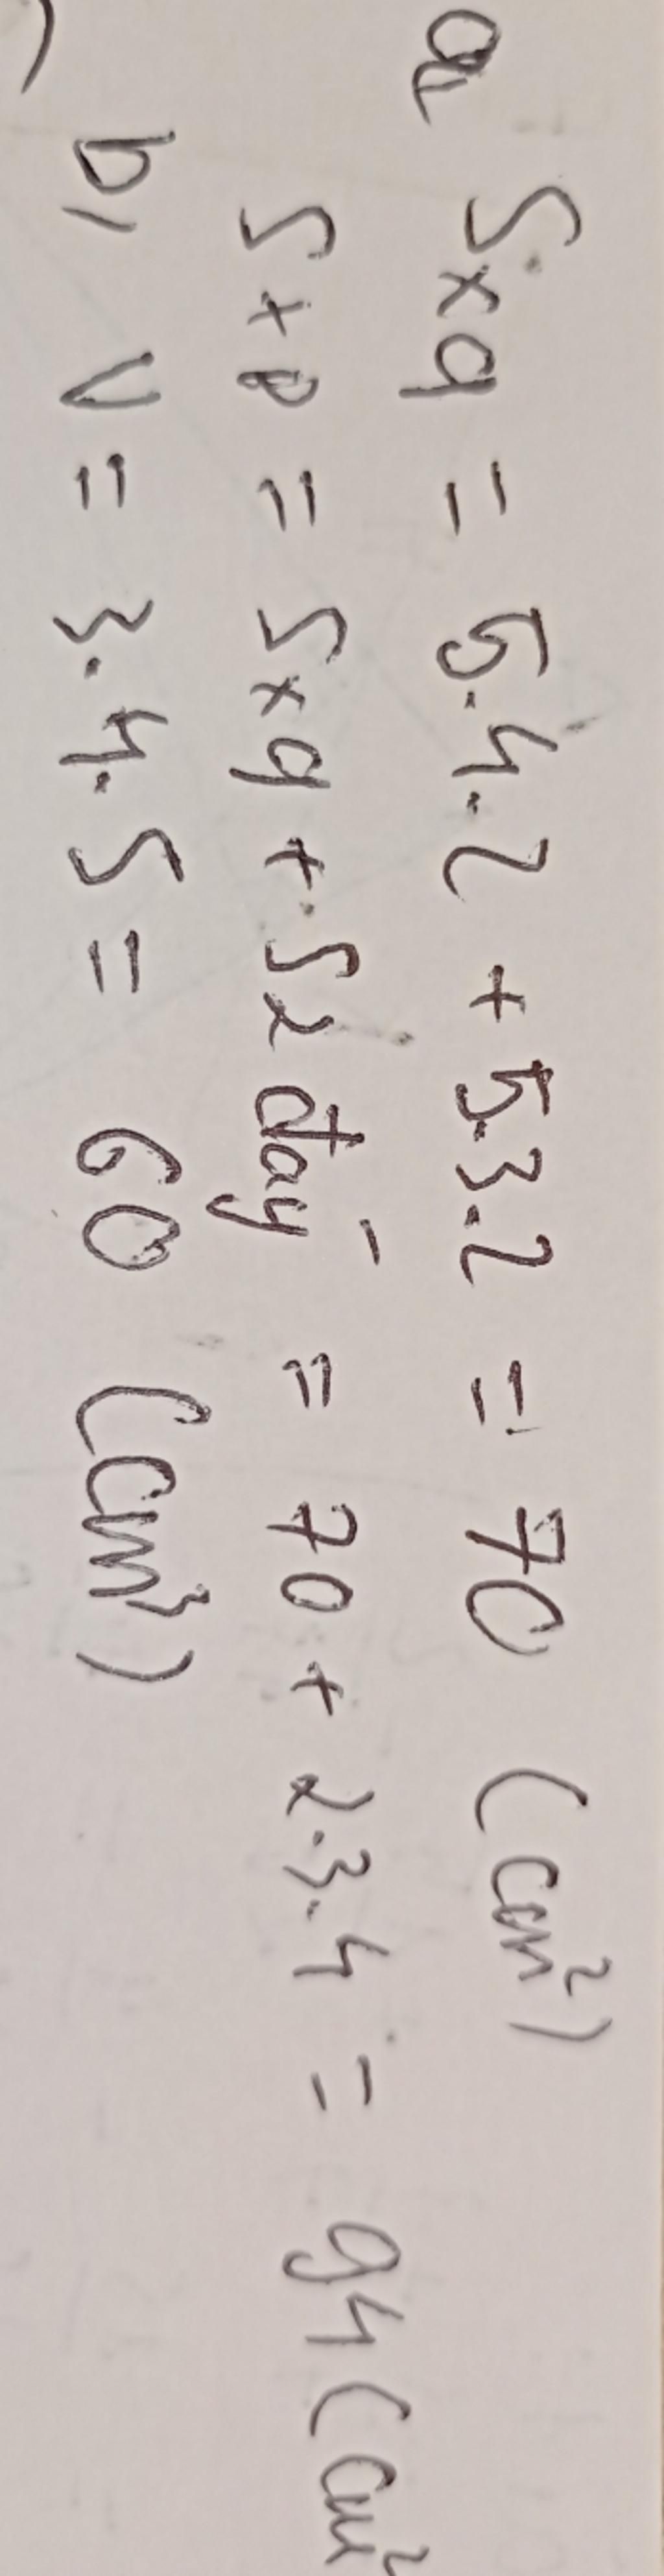 a, Sxq = 5.4.2 + 5.3.2 = 70 (cm²)
Sxp = Sxq + S2 đáy = 70 + 2.3.4 = 94 (cm²
b, V = 3.4.5 = 60 (cm³)